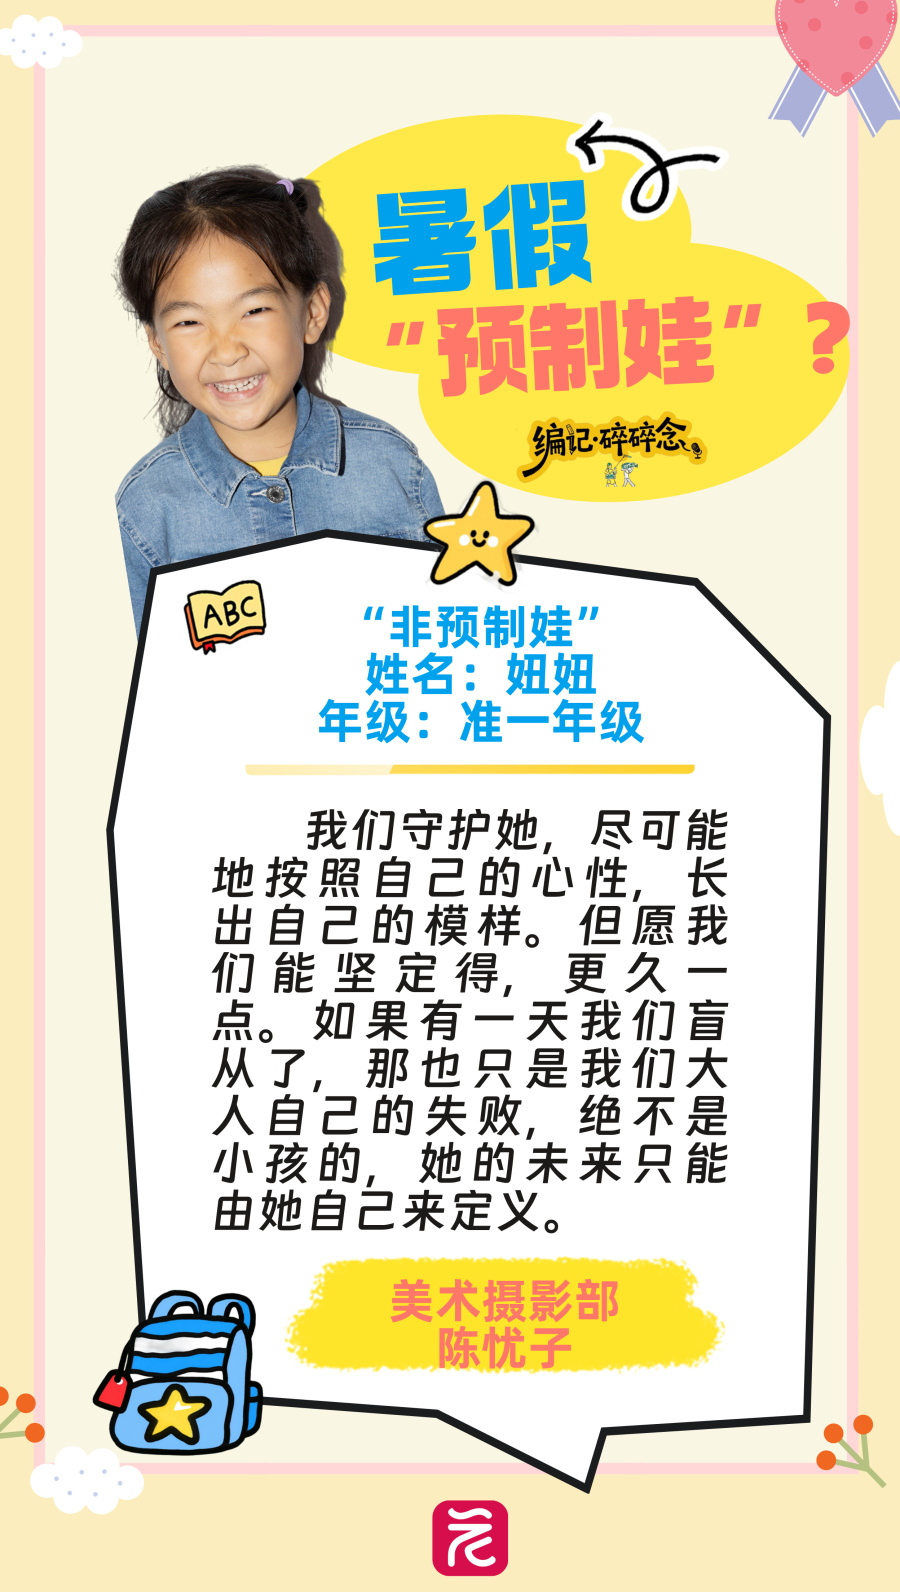 暑假
“预制娃”？
编记·碎碎念
ABC
“非预制娃”
姓名：妞妞
年级：准一年级
我们守护她，尽可能
地按照自己的心性，长
出自己的模样。但愿我
们能坚定得，更久一
点。如果有一天我们盲
从了，那也只是我们大
人自己的失败，绝不是
小孩的，她的未来只能
由她自己来定义。
美术摄影部
陈忧子